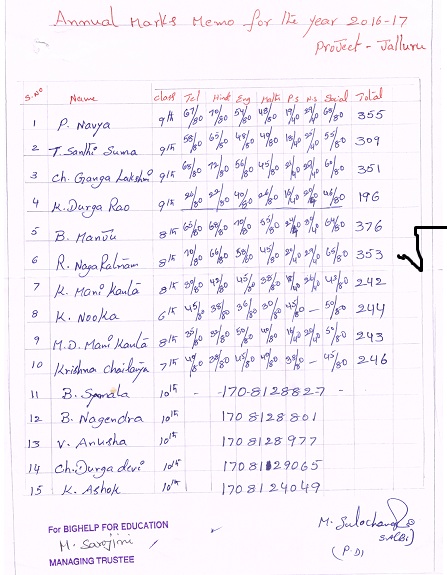 Annual Marks Memo for the year 2016-17
Project - Jalluru
S.No Name class Tel Hindi Eng Maths P.S N.S Social Total
1 P. Navya 9th 67/80 70/80 54/80 48/80 19/40 68/80 355
2 T. Santhi Suma 9th 58/80 65/80 48/80 49/80 55/80 309
3 Ch. Ganga Lakshmi 9th 68/80 72/80 56/80 45/80 60/80 351
4 K. Durga Rao 9th 40/80 196
5 B. Manju 8th 65/80 69/80 70/80 376
6 R. Naga Ratnam 8th 70/80 66/80 58/80 45/80 65/80 353
7 K. Mani Kanta 8th 45/80 45/80 38/80 43/80 242
8 K. Nooka 6th 45/80 38/80 36/80 30/80 45/80 - 50/80 244
9 M.D. Mani Kanta 8th 50/80 40/80 50/80 243
10 Krishna Chaitanya 7th 49/80 38/80 45/80 38/80 - 45/80 246
11 B. 10th - -170-8128827 -
12 B. Nagendra 10th 1708128801
13 V. Anusha 10th 1708128977
14 Ch. Durga devi 10th 1708129065
15 K. Ashok 10th 1708124049
For BIGHELP FOR EDUCATION
M. Sarojini
MANAGING TRUSTEE
M. Sulochana
(P.D)